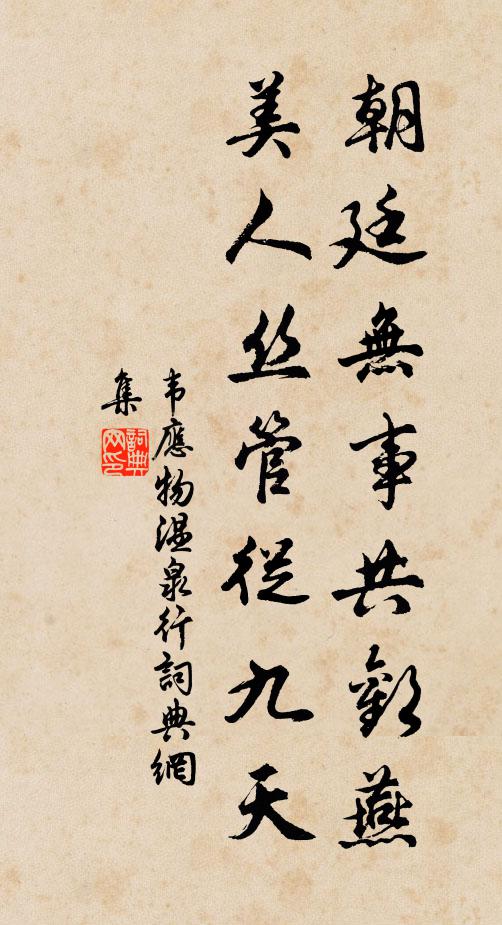 朝廷無事共歡燕
美人丝管從九天
韦應物温泉行詞典網
集
詞典網印